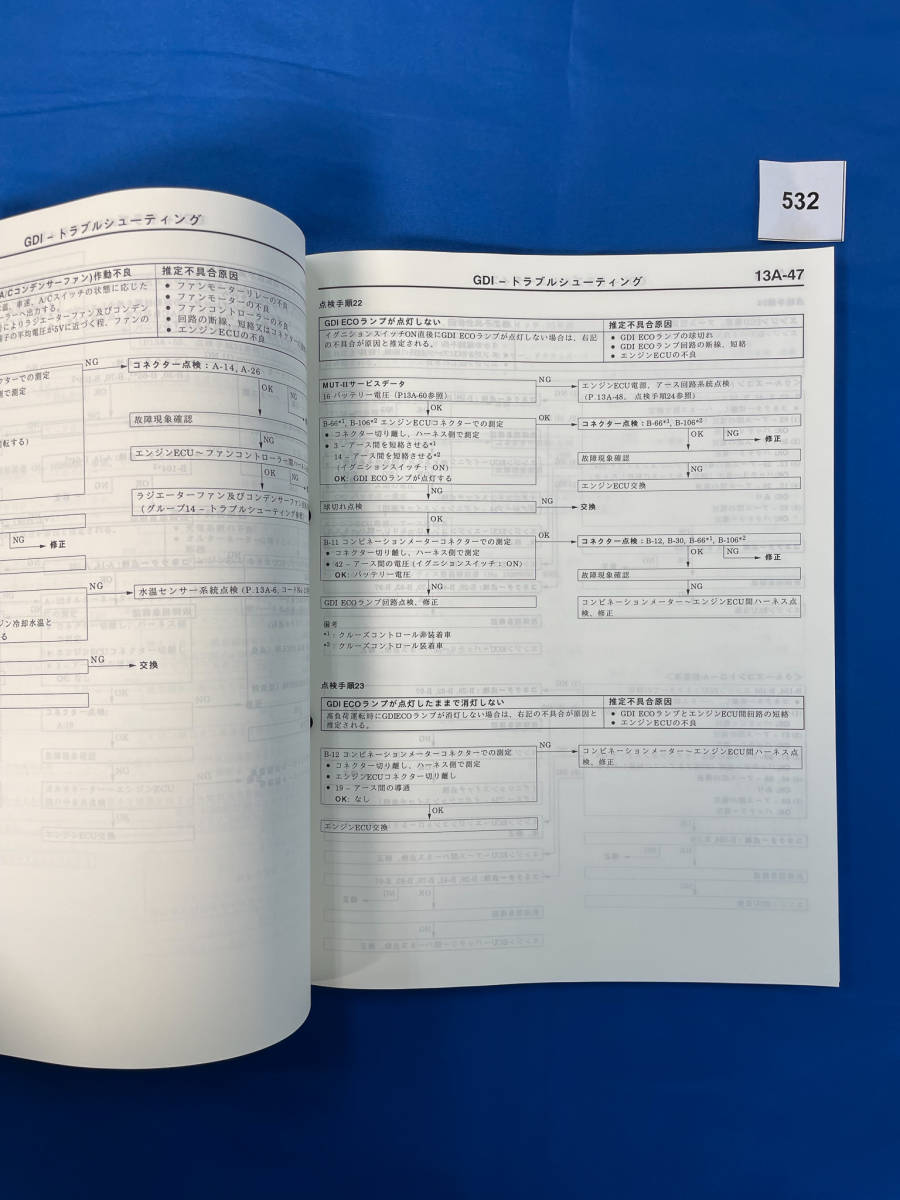 532
GDI – トラブルシューティング
A/Cコンデンサーファン)作動不良
推定不具合原因
温、車速、A/Cスイッチの状態に応じた
ーラーへ出力する。
号によりラジエーターファン及びコンデン
端子の平均電圧が5Vに近づく程、ファンの
● ファンモーターリレーの不良
● ファンモーターの不良
● ファンコントローラーの不良
● 回路の断線、短絡又はコネクター
● エンジンECUの不良
クターでの測定
側で測定
NG
コネクター点検：A-14, A-26
OK
NG
故障現象確認
NG
エンジンECU～ファンコントローラー間ハーネス
OK
NG
転する)
ラジエーターファン及びコンデンサーファン
(グループ14 – トラブルシューティング参照)
NG
修正
NG
水温センサー系統点検 (P.13A-6, コードNo.
ジン冷却水温と
る
NG
交換
GDI – トラブルシューティング
13A-47
点検手順22
GDI ECOランプが点灯しない
イグニションスイッチON直後にGDI ECOランプが点灯しない場合は、右記
の不具合が原因と推定される。
推定不具合原因
● GDI ECOランプの球切れ
● GDI ECOランプ回路の断線、短絡
● エンジンECUの不良
MUT-IIサービスデータ
16 バッテリー電圧 (P.13A-60参照)
NG
エンジンECU電源、アース回路系統点検
(P.13A-48、点検手順24参照)
OK
B-66*1, B-106*2 エンジンECUコネクターでの測定
● コネクター切り離し、ハーネス側で測定
● 3 – アース間を短絡させる*1
14 – アース間を短絡させる*2
(イグニションスイッチ：ON)
OK: GDI ECOランプが点灯する
OK
コネクター点検：B-66*1, B-106*2
OK
NG
修正
故障現象確認
NG
エンジンECU交換
NG
球切れ点検
NG
交換
OK
B-11 コンビネーションメーターコネクターでの測定
● コネクター切り離し、ハーネス側で測定
● 42 – アース間の電圧 (イグニションスイッチ：ON)
OK: バッテリー電圧
OK
コネクター点検：B-12, B-30, B-66*1, B-106*2
OK
NG
修正
故障現象確認
NG
コンビネーションメーター～エンジンECU間ハーネス点
検、修正
NG
GDI ECOランプ回路点検、修正
備考
*1：クルーズコントロール非装着車
*2：クルーズコントロール装着車
点検手順23
GDI ECOランプが点灯したままで消灯しない
高負荷運転時にGDIECOランプが消灯しない場合は、右記の不具合が原因と
推定される。
推定不具合原因
● GDI ECOランプとエンジンECU間回路の短絡
● エンジンECUの不良
B-12 コンビネーションメーターコネクターでの測定
● コネクター切り離し、ハーネス側で測定
● エンジンECUコネクター切り離し
● 19 – アース間の導通
OK: なし
NG
コンビネーションメーター～エンジンECU間ハーネス点
検、修正
OK
エンジンECU交換